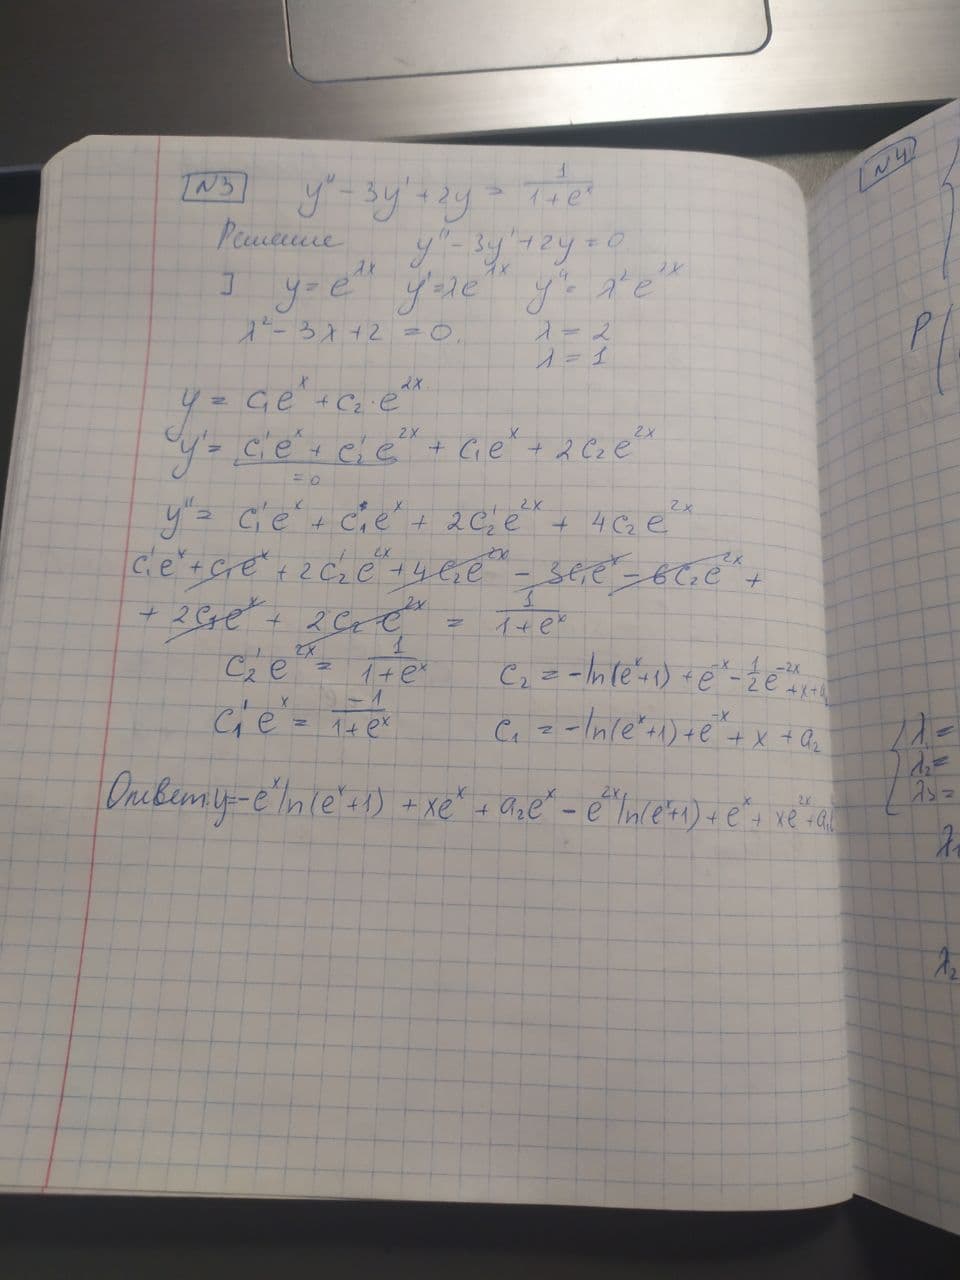 N3 y'' - 3y' + 2y = 1/(1+e^x)
Решение y'' - 3y' + 2y = 0
] y = e^{λx} y' = λe^{λx} y'' = λ²e^{λx}
λ² - 3λ + 2 = 0. λ = 2
λ = 1
y = c₁e^x + c₂·e^{2x}
y' = c₁'e^x + c₂'e^{2x} + c₁e^x + 2c₂e^{2x}
= 0
y'' = c₁'e^x + c₁e^x + 2c₂'e^{2x} + 4c₂e^{2x}
c₁'e^x + c₁e^x + 2c₂'e^{2x} + 4c₂e^{2x} - 3c₁e^x - 6c₂e^{2x} +
+ 2c₁e^x + 2c₂e^{2x} = 1/(1+e^x)
c₂'e^{2x} = 1/(1+e^x) c₂ = -ln(e^x+1) + e^{-x} - 1/2 e^{-2x} + x + a
c₁'e^x = -1/(1+e^x) c₁ = -ln(e^x+1) + e^{-x} + x + a₂
Ответ: y = -e^x ln(e^x+1) + xe^x + a₂e^x - e^{2x} ln(e^x+1) + e^x + xe^{2x} + a₁
N4
P(
λ₁ =
λ₂ =
λ₃ =
λ₁
λ₂